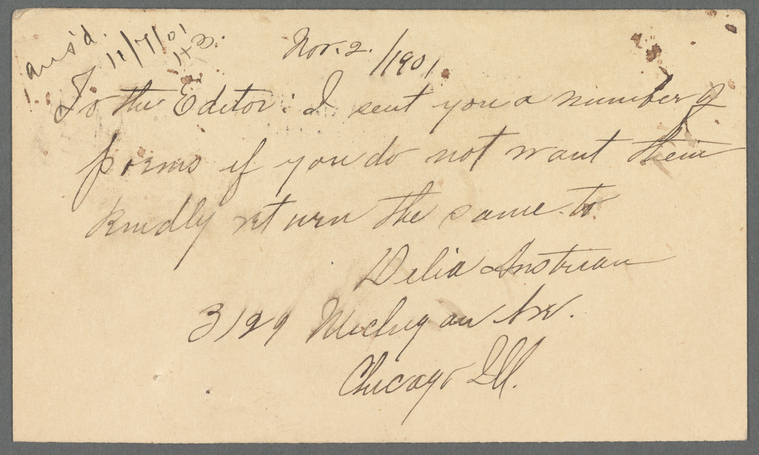 ans'd.
11/7/01
Nov. 2. /1901
To the Editor: I sent you a number of
poems if you do not want them
kindly return the same to.
Delia Austrian
3129 Michigan Av.
Chicago Ill.